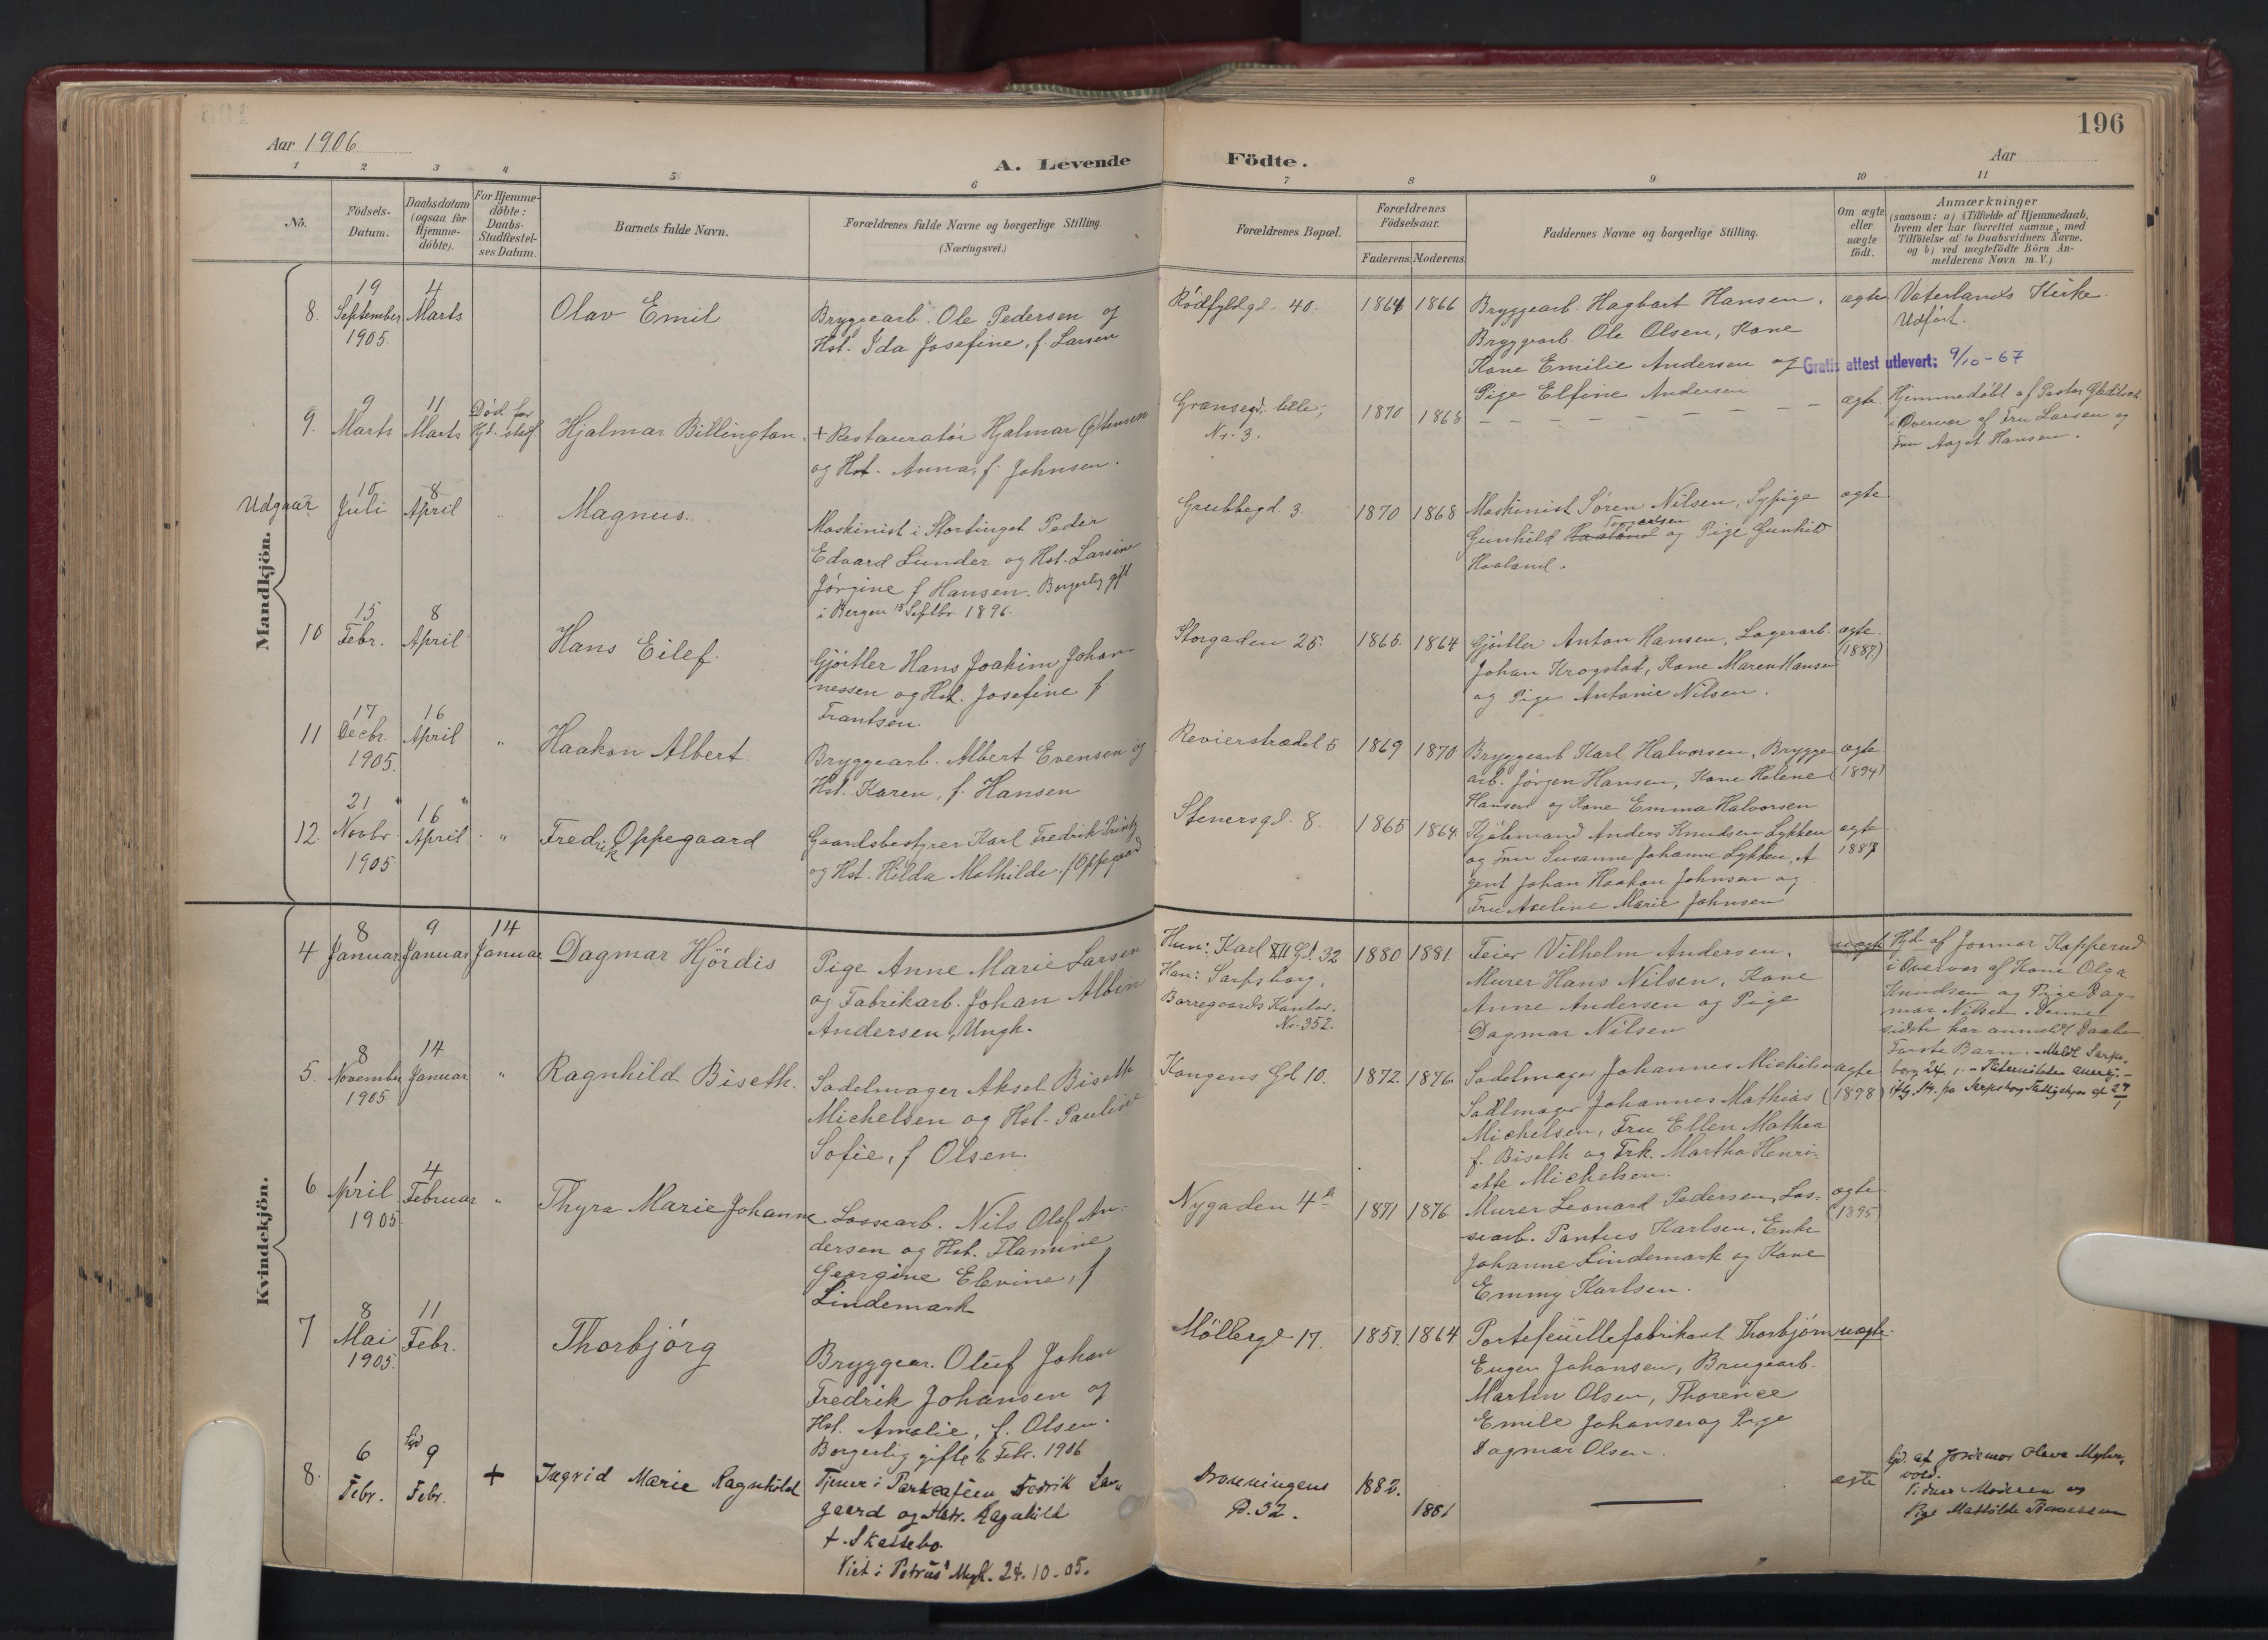 196
Aar 1906
A. Levende Födte.
Aar
1 2 3 4 5 6 7 8 9 10 11
No.
Födsels-
Datum.
Daabsdatum
(ogsaa for
Hjemme-
döbte).
For Hjemme-
döbte:
Daabs-
Stadfæstel-
ses Datum.
Barnets fulde Navn.
Forældrenes fulde Navne og borgerlige Stilling.
(Næringsvei.)
Forældrenes Bopæl.
Forældrenes
Födselsaar.
Faderens. Moderens.
Faddernes Navne og borgerlige Stilling.
Om ægte
eller
uægte
födt.
Anmærkninger
(saasom: a) i Tilfælde af Hjemmedaab,
hvem der har forrettet samme, med
Tilföielse af to Daabsvidners Navne,
og b) ved uægtefödte Börn An-
melderens Navn m. V.)
Mandkjön.
8.
19
September
1905.
4
Marts
Olav Emil
Bryggearb. Ole Pedersen og
Hst. Ida Josefine, f. Larsen
Rödfyldgd. 40.
1864 1866
Bryggearb. Hagbart Hansen,
Bryggearb. Ole Olsen, Kone
Kone Emilie Andersen og
Pige Elfine Andersen
ægte
Vaterlands Kirke.
Udført.
Gratis attest utlevert: 9/10-67
9.
9
Marts
11
Marts
Død før
Kd. stadf
Hjalmar Billington.
+ Restauratör Hjalmar Ottensen
og Hst. Anna, f. Johnsen.
Grænsegd. lille,
Nr. 3.
1870 1868
ægte
Hjemmedöbt af Pastor
i Overvær af Fru Larsen og
Fru Aagot Hansen.
Udgaar
15
Juli
8
April
"
Magnus.
Maskinist i Stortinget Peder
Edvard Lunder og Hst. Larsine
Jørgine f Hansen. Borgerlig gift
i Bergen 15 Septbr. 1896.
Grubbegd. 3.
1870 1868
Maskinist Sören Nilsen, Sypige
Gunhild Haaland Torgersen og Pige Gunhild
Haaland.
ægte
10
15
Febr.
8
April
Hans Eilef.
Gjörtler Hans Joakim Johan-
nessen og Hst. Josefine f.
Frantsen.
Storgaden 25.
1865. 1864
Gjörtler Anton Hansen, Lagerarb.
Johan Krogstad, Kone Maren Hansen
og Pige Antonie Nilsen.
ægte.
(1887)
11
17
Decbr.
1905.
16
April
"
Haakon Albert.
Bryggearb. Albert Evensen og
Hst. Karen, f. Hansen
Revierstrædet 5
1869 1870
Bryggearb Karl Halvorsen, Brygge
arb. Jörgen Hansen, Kone Helene
Hansen og Kone Emma Halvorsen
ægte
(1894)
12.
21
Novbr.
1905
16
April
"
Fredrik Oppegaard
Gaardsbestyrer Karl Fredrik Printz
og Hst. Hilda Mathilde f Oppegaard
Stenersgd. 8.
1865 1864
Kjöbmand Anders Knudsen Lykken
og Fru Susanne Johanne Lykken, A
gent Johan Haakon Johnsen og
Fru Axeline Marie Johnsen
ægte
1887
Kvindekjön.
4
8
Januar
9
Januar
14
Januar
Dagmar Hjördis
Pige Anne Marie Larsen
og Fabrikarb. Johan Albin
Andersen, Ungk.
Hun: Karl XII Gd. 32
Han: Sarpsborg,
Borregaards Kontor.
Nr. 352.
1880 1881.
Feier Vilhelm Andersen,
Murer Hans Nilsen, Kone
Anne Andersen og Pige
Dagmar Nilsen
uægte
Hjd. af Jormor Kopperud
i Overvær af Kone Olga
Knudsen og Pige Dag-
mar Nilsen. Denne
sidste har anmeldt Daaben
Første Barn. - Meldt Sarps-
borg 24/1. - Paterniteten anerkj. -
iflg. Skr. fra Sarpsborg Fattigstyre af 29/1
5.
8
November
1905
14
Januar
"
Ragnhild Biseth.
Sadelmager Aksel Biseth
Michelsen og Hst. Pauline
Sofie, f Olsen.
Kongens Gd 10.
1872. 1876
Sadelmager Johannes Michelsen
Sadlmager Johannes Mathias
Michelsen, Fru Ellen Mathea
f. Biseth og Frk. Martha Henri-
ette Michelsen.
ægte
(1898)
6
1
April
1905.
4
Februar
"
Thyra Marie Johanne
Lossearb. Nils Olaf An-
dersen og Hst. Flamine
Georgine Elevine, f
Lindemark
Nygaden 4b
1871 1876.
Murer Leonard Pedersen, Los-
searb. Pantus Karlsen, Enke
Johanne Lindemark og Kone
Emmy Karlsen.
ægte.
(1895)
7
8
Mai
1905.
11
Febr.
Thorbjörg
Bryggear. Oluf Johan
Fredrik Johansen og
Hst. Amalie, f. Olsen.
Borgerlig gifte 6 Febr. 1906
Möllergd 17.
1857. 1864
Portefeuillefabrikant Thorbjörn
Eugen Johansen, Brugearb.
Martin Olsen, Thorence
Emilie Johansen og Pige
Dagmar Olsen.
uægte.
8.
6
Febr.
Hjd 9
Febr.
+
Ingrid Marie Ragnhild
Tjener i Parkcafeen Fedrik
gaard og Hstr. Ragnhild
f. Skattebo.
Viet i Petrus Mgk. 24.10-05.
Dronningens
G. 32.
1882.
1881
ægte
Hjd. af Jordemor Olava
vold.
Vidner: Moderen og
Pige Mathilde